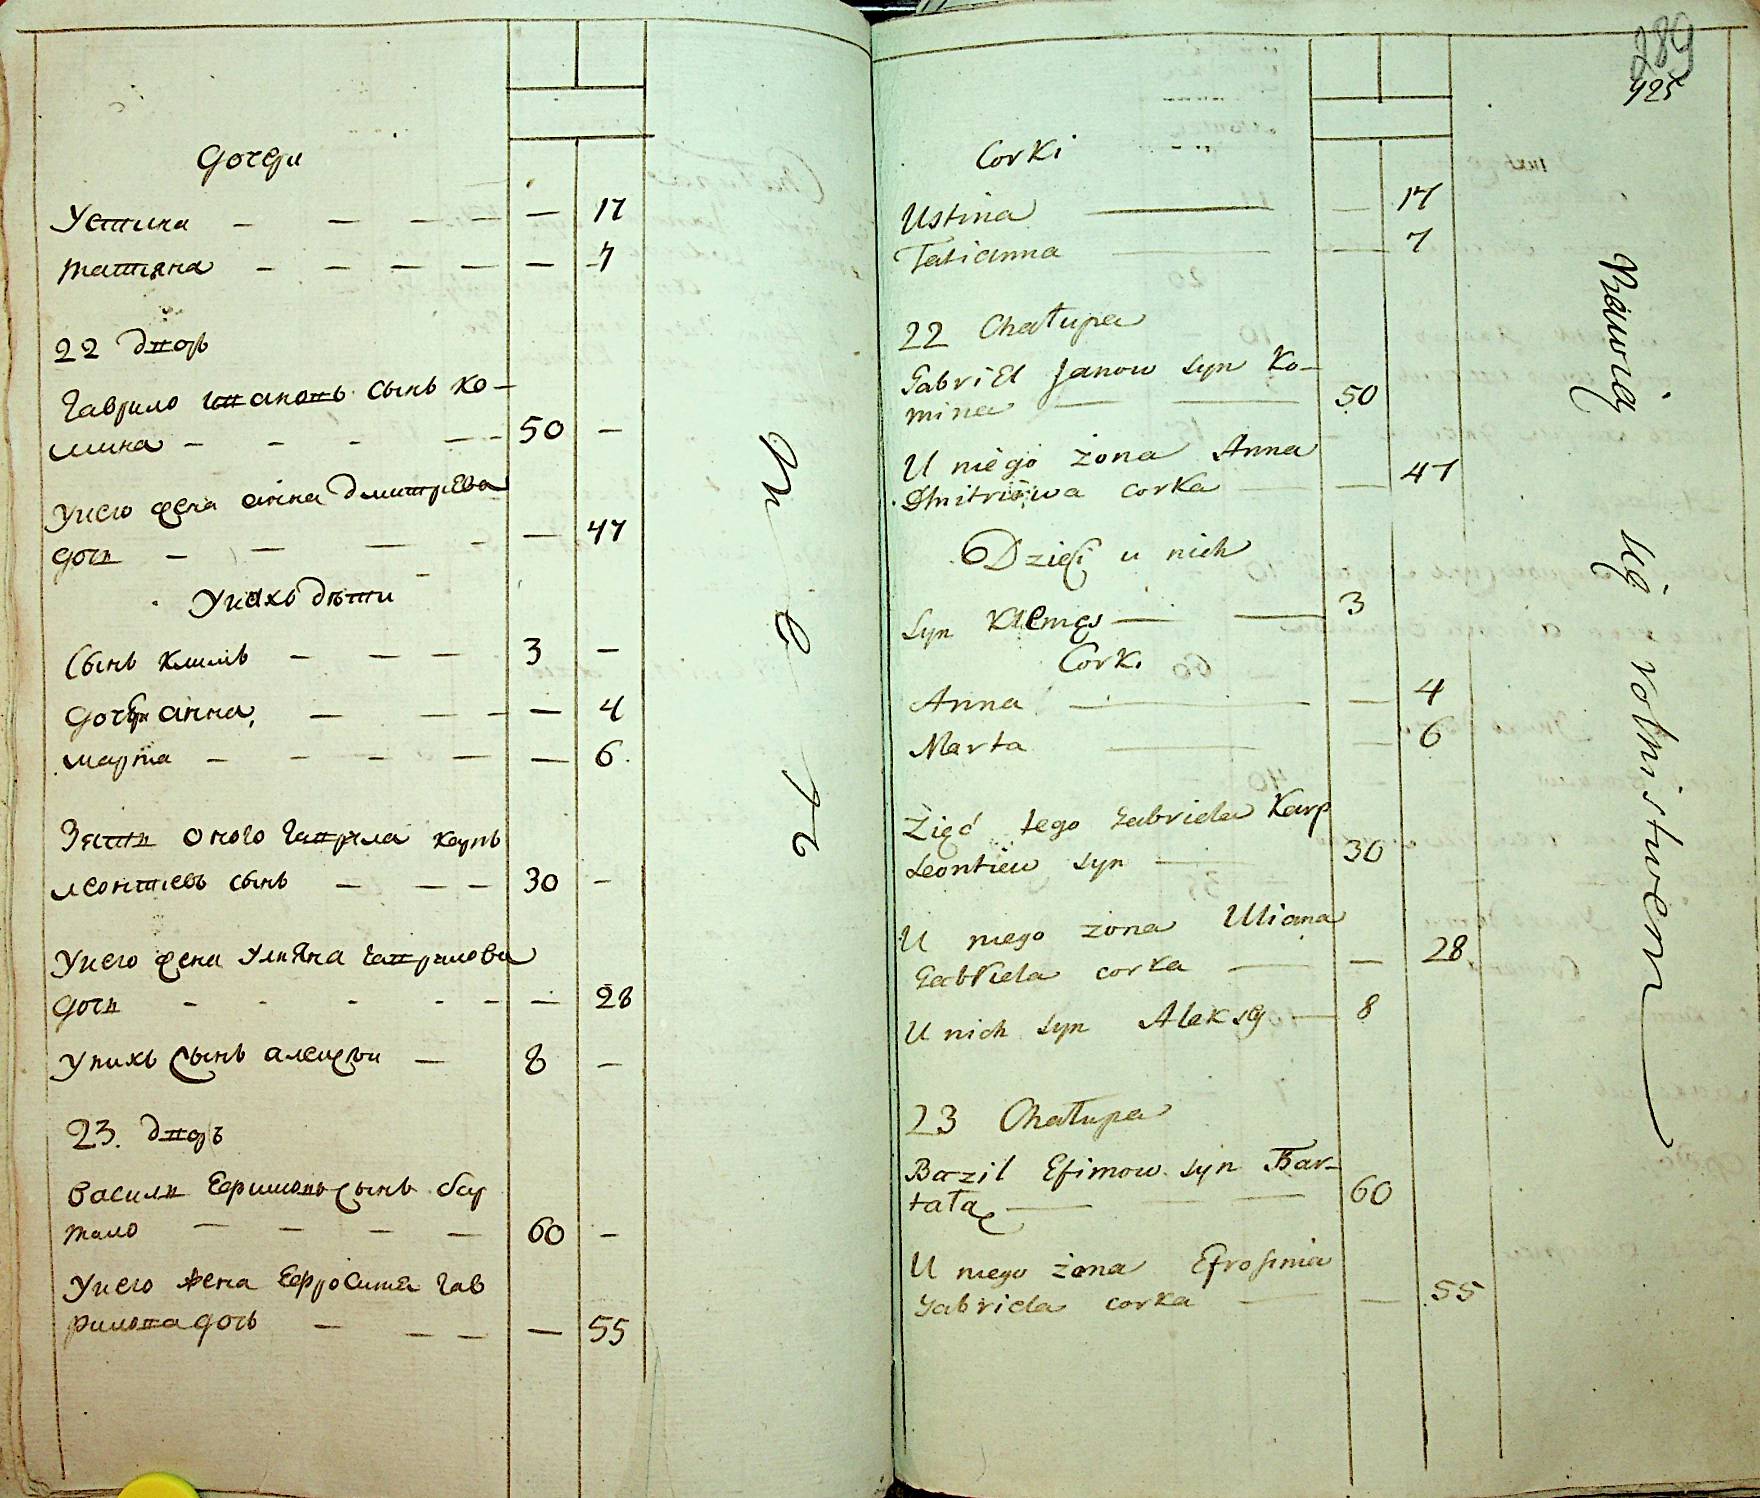 Дочери
Устина — — — — — 17
татіяна — — — — — 7
22 дворъ
Гаврило ивановъ сынъ ко-
мина — — — — 50 —
У него жена анна дмитрева
дочь — — — — — 47
У нихъ дѣти
Сынъ климъ — — — 3 —
дочери анна, — — — — 4
марта — — — — — 6
Зять оного гаврила карпъ
леонтиевъ сынъ — — — 30 —
У него жена улияна гаврилова
дочь — — — — — — 28
У нихъ сынъ алексѣи — 8 —
23. дворъ
Василь Ефимовъ сынъ бар
тало — — — — 60 —
У него жена Ефросиния гав
рилова дочь — — — — 55
289
425
Corki
Ustina — — 17
Tatianna — — 7
22 Chałupa
Gabriel Janow syn Ko-
mina — — 50
U niego żona Anna
Dmitriewa corka — — 47
Dzieci u nich
syn Klemęs — — 3
Corki
Anna — — 4
Marta — — 6
Zięć tego Gabriela Karp
Leontiew syn — 30
U niego żona Uliana
Gabriela corka — — 28
U nich syn Aleksy — 8
23 Chałupa
Bazil Efimow syn Bar-
tała — — 60
U niego żona Efrosinia
Gabriela corka — — 55
bawią się rolnistwem